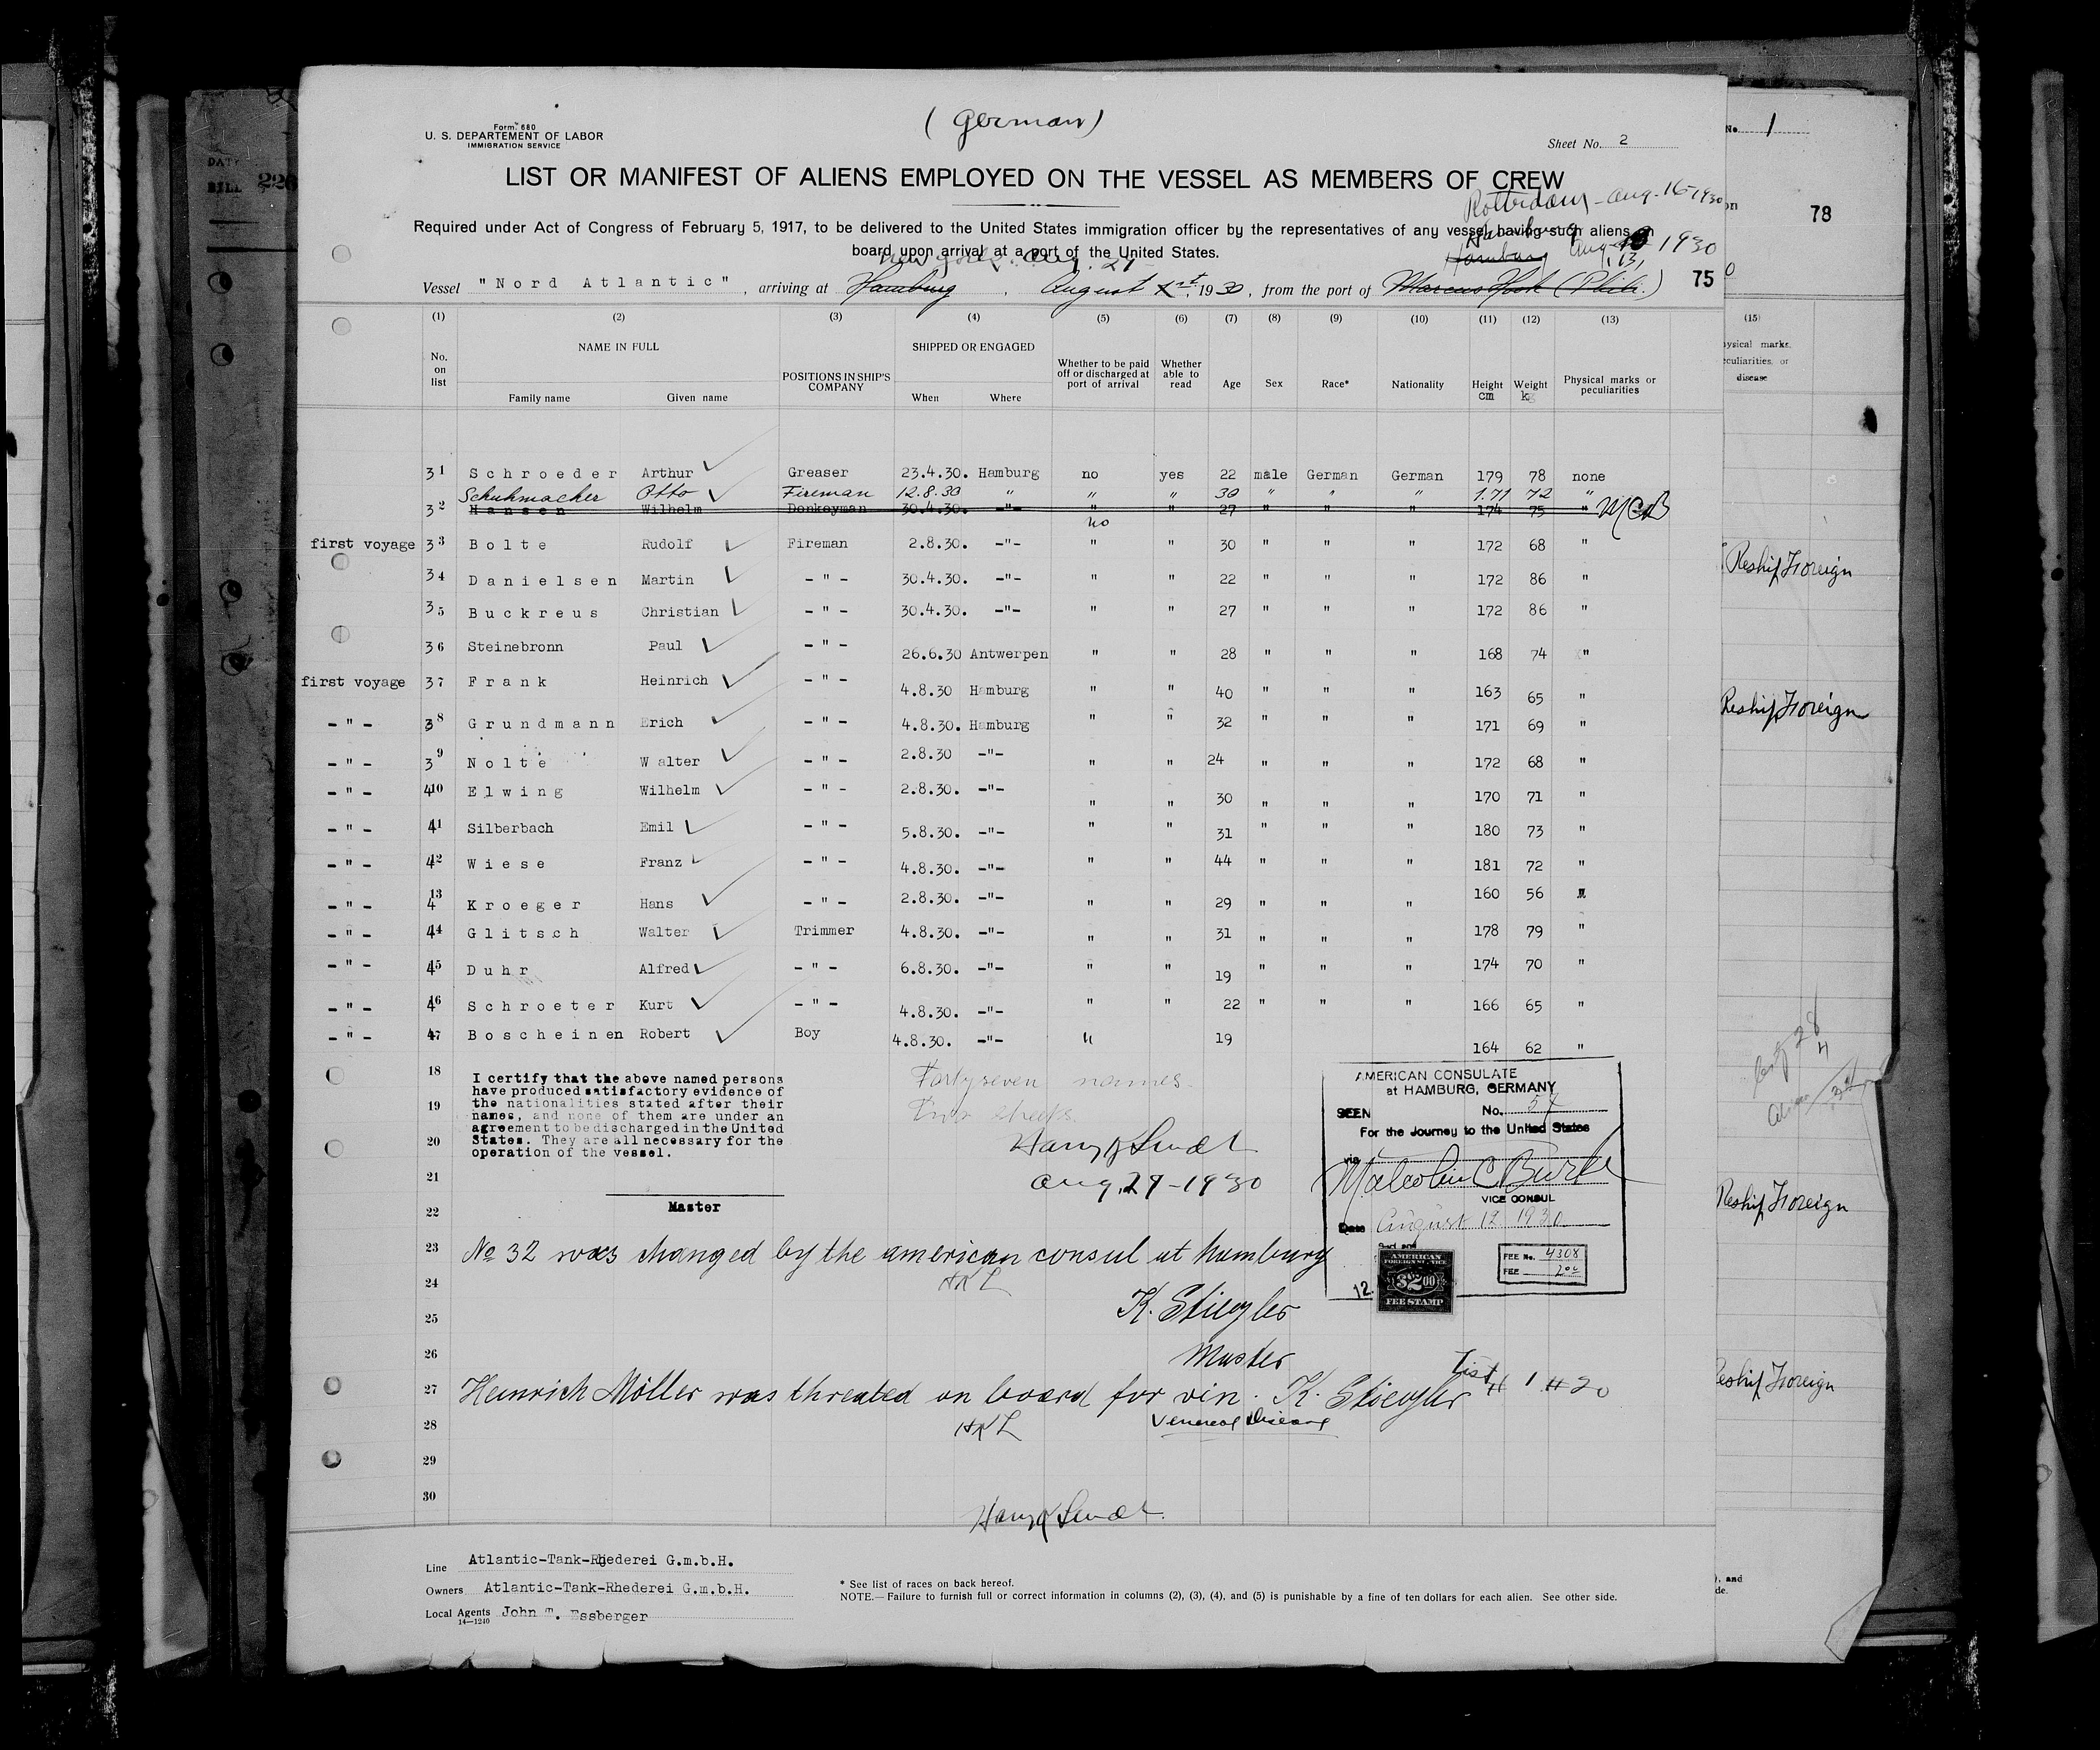 ( German )
Form 680
U. S. DEPARTMENT OF LABOR
IMMIGRATION SERVICE
Sheet No. 2
No. 1
LIST OR MANIFEST OF ALIENS EMPLOYED ON THE VESSEL AS MEMBERS OF CREW
Rotterdam - Aug - 16 - 1930
Required under Act of Congress of February 5, 1917, to be delivered to the United States immigration officer by the representatives of any vessel having such aliens on
board upon arrival at a port of the United States.
Hamburg Aug 13, 1930
78
New York Aug. 27
Vessel "Nord Atlantic", arriving at Hamburg, August 1st, 1930, from the port of Marcus Hook (Phila.) 75
(1) (2) (3) (4) (5) (6) (7) (8) (9) (10) (11) (12) (13) (15)
No. on list NAME IN FULL Family name Given name POSITIONS IN SHIP'S COMPANY SHIPPED OR ENGAGED When Where Whether to be paid off or discharged at port of arrival Whether able to read Age Sex Race* Nationality Height cm Weight kg Physical marks or peculiarities
31 Schroeder Arthur Greaser 23.4.30. Hamburg no yes 22 male German German 179 78 none
Schuhmacher Otto Fireman 12.8.30 " " " 30 " " " 1.71 72 "
32 Hansen Wilhelm Donkeyman 30.4.30. -"- " " 27 " " " 174 75 " MCB
no
first voyage 33 Bolte Rudolf Fireman 2.8.30. -"- " " 30 " " " 172 68 "
34 Danielsen Martin -"- 30.4.30. -"- " " 22 " " " 172 86 " Reship Foreign
35 Buckreus Christian -"- 30.4.30. -"- " " 27 " " " 172 86 "
36 Steinebronn Paul -"- 26.6.30 Antwerpen " " 28 " " " 168 74 "
first voyage 37 Frank Heinrich -"- 4.8.30 Hamburg " " 40 " " " 163 65 " Reship Foreign
-"- 38 Grundmann Erich -"- 4.8.30. Hamburg " " 32 " " " 171 69 "
-"- 39 Nolte Walter -"- 2.8.30 -"- " " 24 " " " 172 68 "
-"- 410 Elwing Wilhelm -"- 2.8.30. -"- " " 30 " " " 170 71 "
-"- 41 Silberbach Emil -"- 5.8.30. -"- " " 31 " " " 180 73 "
-"- 42 Wiese Franz -"- 4.8.30. -"- " " 44 " " " 181 72 "
-"- 413 Kroeger Hans -"- 2.8.30. -"- " " 29 " " " 160 56 "
-"- 44 Glitsch Walter Trimmer 4.8.30. -"- " " 31 " " " 178 79 "
-"- 45 Duhr Alfred -"- 6.8.30. -"- " " 19 " " " 174 70 "
-"- 46 Schroeter Kurt -"- 4.8.30. -"- " " 22 " " " 166 65 "
-"- 47 Boscheinen Robert Boy 4.8.30. -"- " 19 164 62 "
18
19
20
21
22
I certify that the above named persons
have produced satisfactory evidence of
the nationalities stated after their
names, and none of them are under an
agreement to be discharged in the United
States. They are all necessary for the
operation of the vessel.
Master
Forty seven names.
Two sheets.
Aug. 27 - 1930
AMERICAN CONSULATE
at HAMBURG, GERMANY
SEEN No. 57
For the Journey to the United States
via
Malcolm C Burke
VICE CONSUL
Date August 12 1930
FEE No. 4308
FEE 2.00
12.
AMERICAN
FOREIGN SERVICE
$2.00
FEE STAMP
Reship Foreign
23 No 32 was changed by the american consul at hamburg
24 HKL
25 K. Stiegler
26 Master
List # 1 # 20
27 Heinrich Möller was threated on board for vin. K. Stiegler
28 HKL Venereal Disease
Reship Foreign
29
30
Line Atlantic-Tank-Rhederei G.m.b.H.
Owners Atlantic-Tank-Rhederei G.m.b.H.
Local Agents John T. Essberger
14—1240
* See list of races on back hereof.
NOTE.—Failure to furnish full or correct information in columns (2), (3), (4), and (5) is punishable by a fine of ten dollars for each alien. See other side.